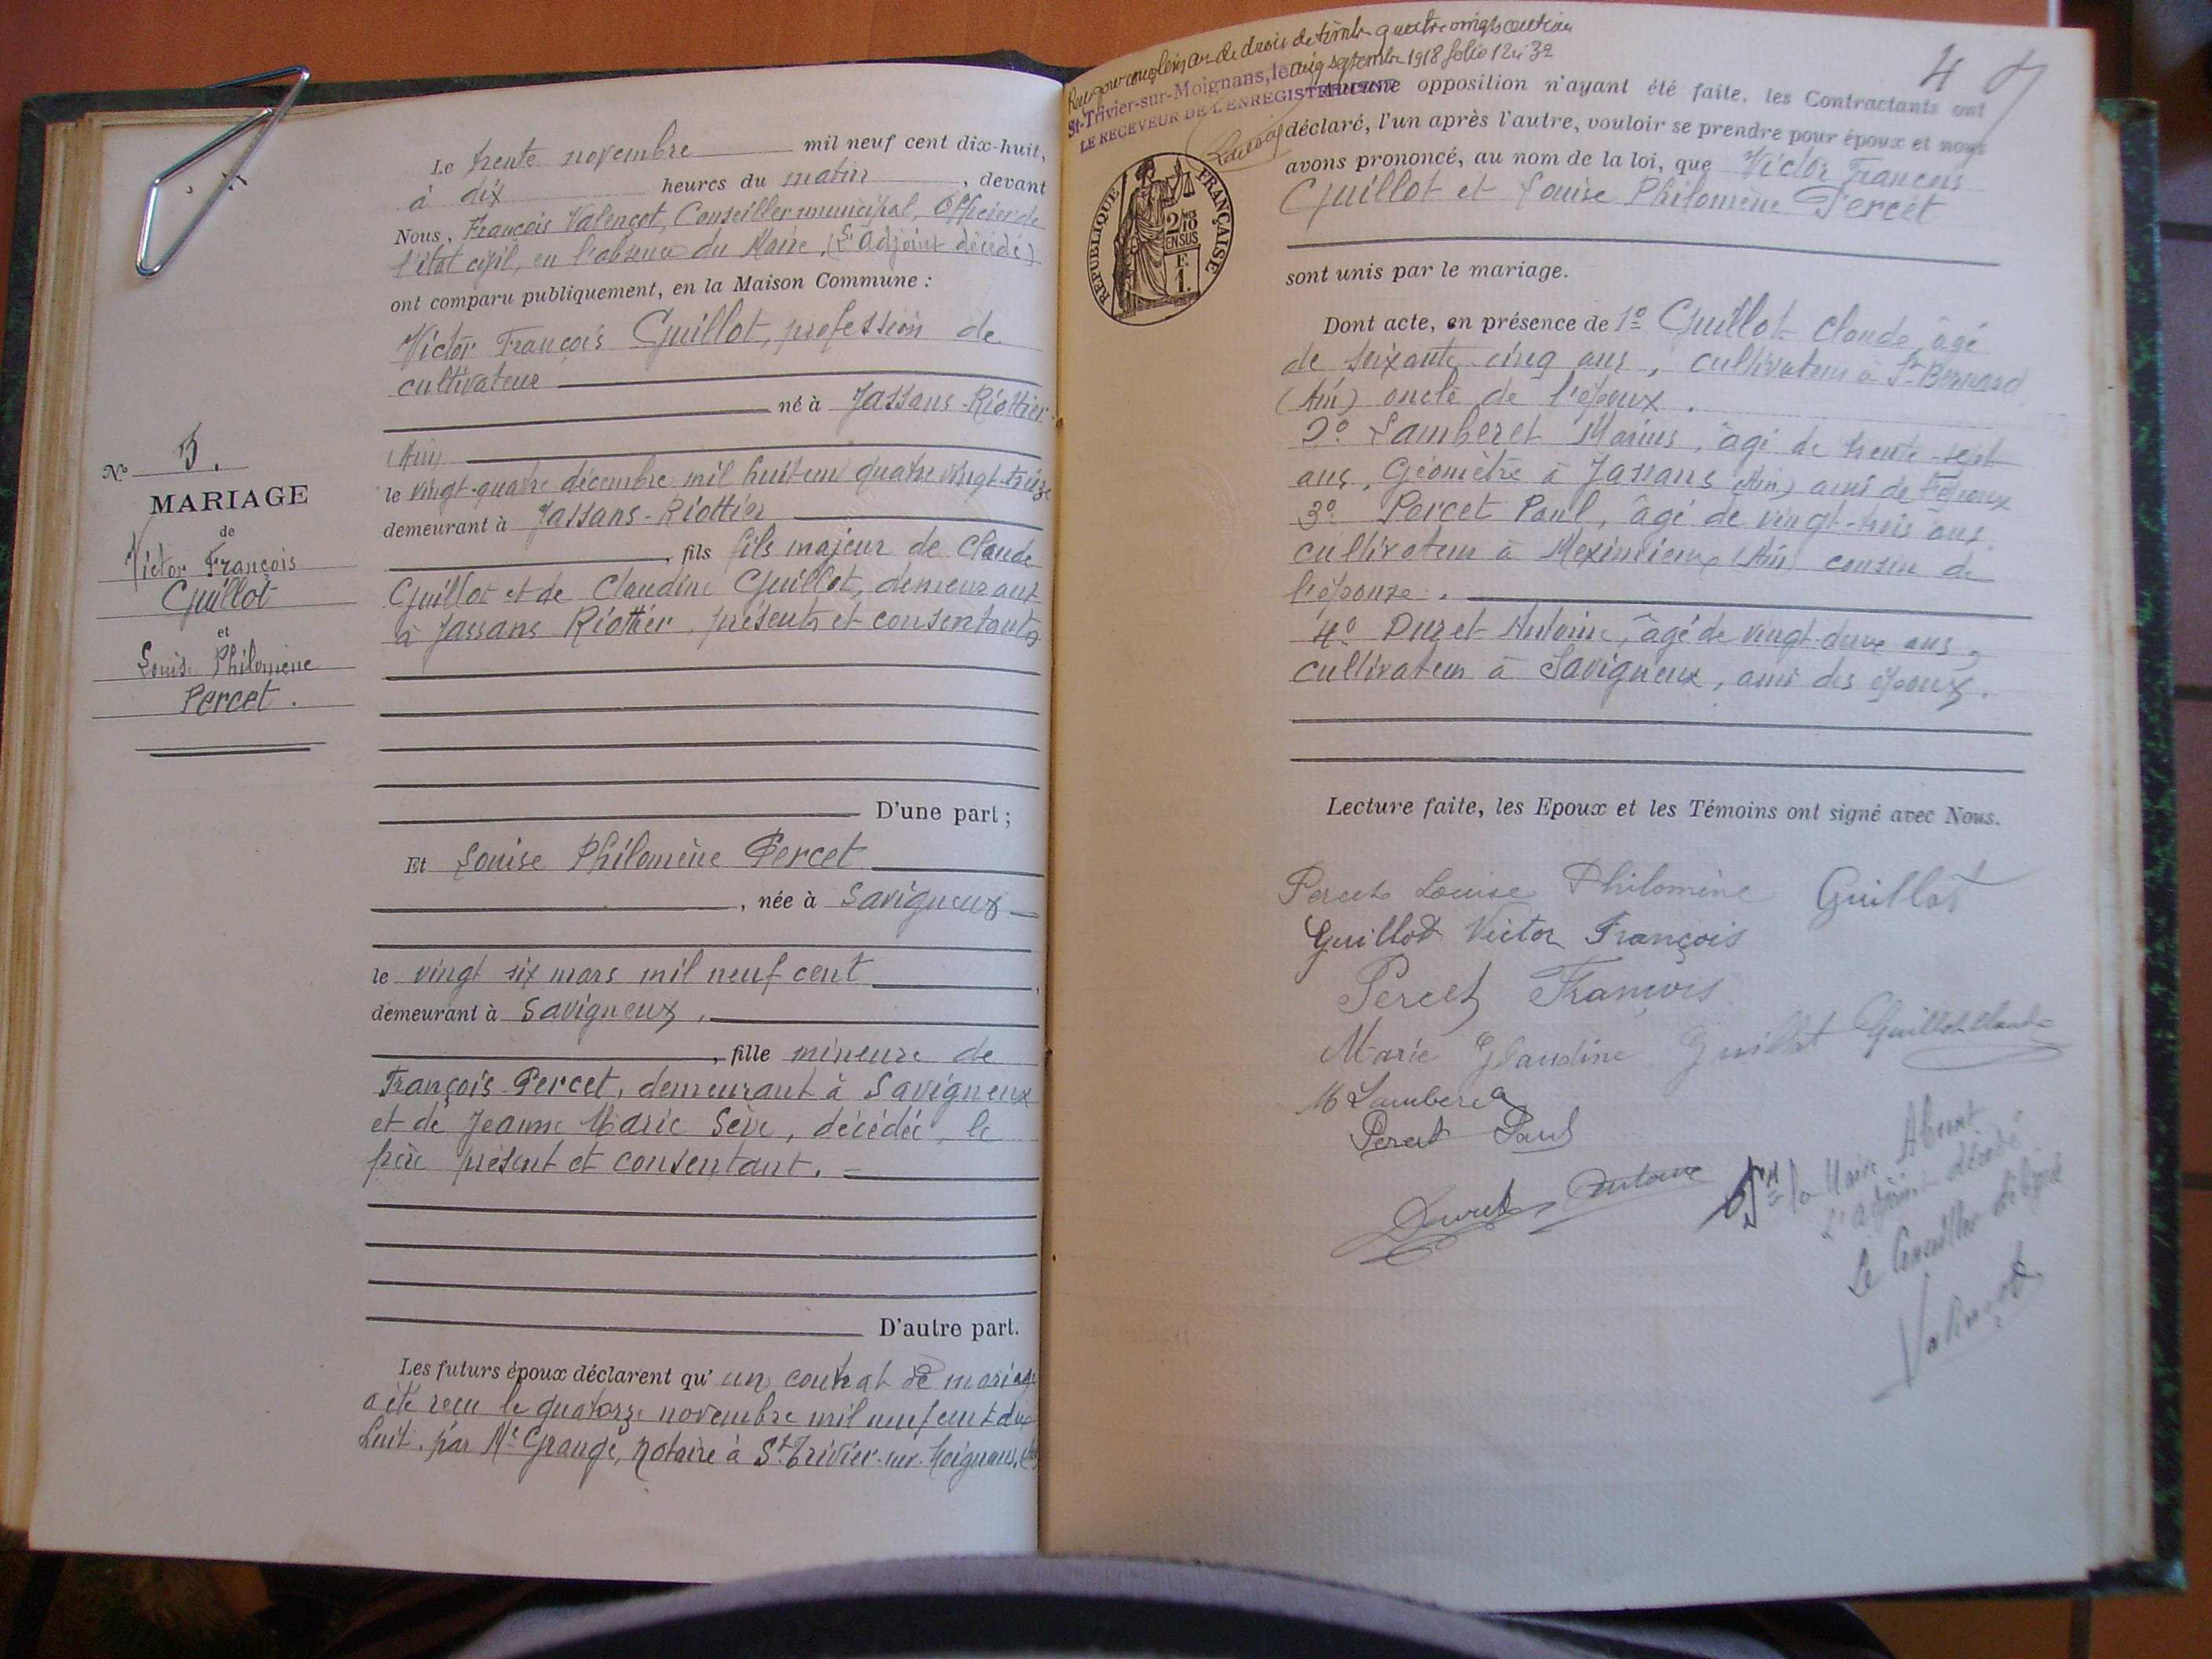 Le trente novembre mil neuf cent dix-huit,
à dix heures du matin, devant
Nous, François Valençot, Conseiller municipal, Officier de
l'état civil, en l'absence du Maire, (L'adjoint décédé)
ont comparu publiquement, en la Maison Commune :
Victor François Guillot, profession de
cultivateur
né à Jassans-Riottier
(Ain)
le vingt-quatre décembre mil huit cent quatre vingt-treize
demeurant à Jassans-Riottier
, fils fils majeur de Claude
Guillot et de Claudine Guillot, demeurant
à Jassans Riottier, présents et consentants
D'une part ;
Et Louise Philomène Percet
, née à Savigneux
le vingt six mars mil neuf cent
demeurant à Savigneux,
, fille mineure de
François Percet, demeurant à Savigneux
et de Jeanne Marie Sève, décédée, le
père présent et consentant.
D'autre part.
Les futurs époux déclarent qu' un contrat de mariage
a été reçu le quatorze novembre mil neuf cent dix
huit, par Me Grange, notaire à St Trivier-sur-Moignans,
No 5.
MARIAGE
de
Victor François
Guillot
et
Louise Philomène
Percet.
de droit de timbre quatre vingt
St-Trivier-sur-Moignans, le cinq septembre 1918 folio 12
LE RECEVEUR DE L'ENREGISTREMENT
4
RÉPUBLIQUE FRANÇAISE
2/10
EN SUS
F.
1.
Aucune opposition n'ayant été faite, les Contractants ont
déclaré, l'un après l'autre, vouloir se prendre pour époux et nous
avons prononcé, au nom de la loi, que Victor François
Guillot et Louise Philomène Percet
sont unis par le mariage.
Dont acte, en présence de 1º Guillot Claude, âgé
de soixante-cinq ans, cultivateur à St Bernard
(Ain) oncle de l'époux.
2º Lamberet Marius, âgé de trente-sept
ans, Géomètre à Jassans (Ain) ami de l'époux
3º Percet Paul, âgé de vingt-trois ans
cultivateur à Meximieux (Ain) cousin de
l'épouse.
4º Duret Antoine, âgé de vingt-deux ans,
cultivateur à Savigneux, ami des époux.
Lecture faite, les Epoux et les Témoins ont signé avec Nous.
Percet Louise Philomène Guillot
Guillot Victor François
Percet François
Marie Glaudine Guillot Guillot Claude
M Lamberet
Percet Paul
Duret Antoine
Pr le Maire Absent
L'adjoint décédé
Le Conseiller délégué
Valençot